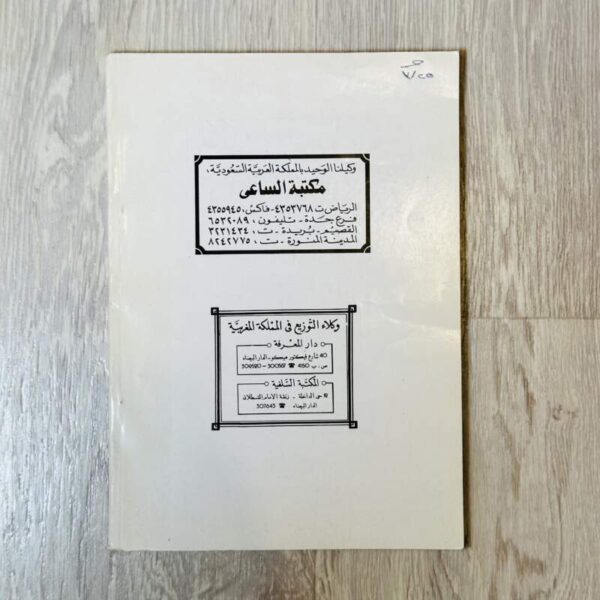 ٧/٢٥
وكيلنا الوحيد بالمملكة العربية السعودية،
مكتبة الساعى
الرياض ت ٤٣٥٣٧٦٨ - فاكس، ٤٣٥٥٩٤٥
فرع جدة - تليفون، ٦٥٣٢٠٨٩
القصيم - بريدة - ت، ٣٢٣١٤٣٤
المدينة المنورة - ت، ٨٢٤٢٧٧٥
وكلاء التوزيع فى المملكة المغربية
دار المعرفة
40 شارع فيكتور هيكو - الدار البيضاء
ص . ب 4150 ☎ 300567 - 309520
المكتبة السلفية
12 حى الداخلة - زنقة الامام القسطلانى
الدار البيضاء ☎ 307643